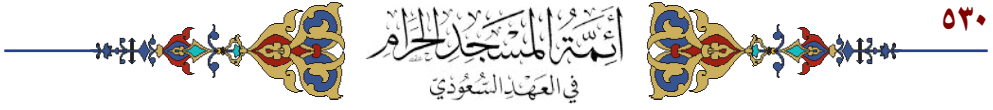 ٥٣٠
أَئِمَّةُ المَسْجِدِ الحَرَامِ
في العَهْدِ السُّعُودِيِّ